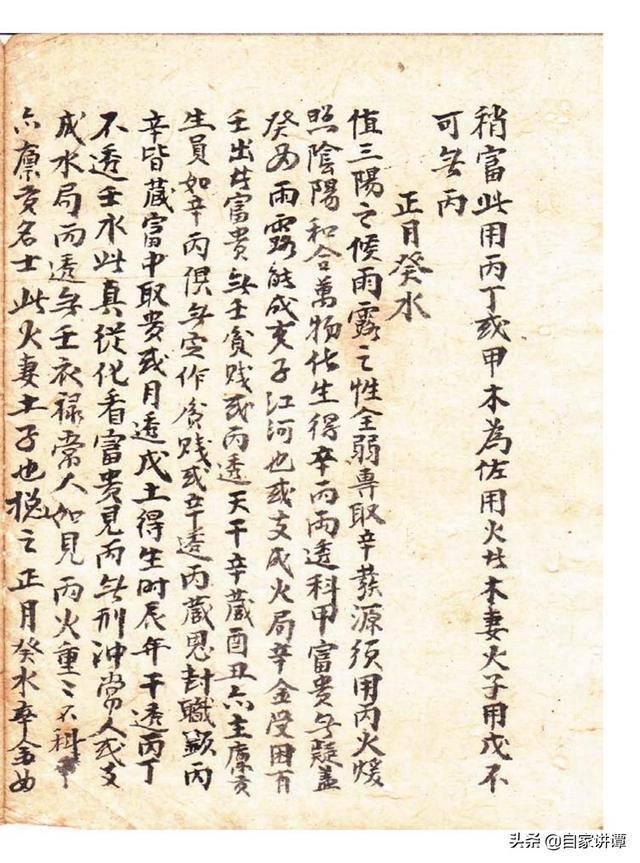 稍富此用丙丁或甲木為佐用火者木妻火子用戊不
可無丙
正月癸水
值三陽之候雨露之性全弱專取辛發源須用丙火煖
照陰陽和合萬物化生得辛丙兩透科甲富貴無疑蓋
癸為雨露能成亥子江河也或支成火局辛金受困有
壬出者富貴無壬貧賤或丙透天干辛藏酉丑亦主廩貢
生員如辛丙俱無定作貧賤或辛透丙藏恩封職顯丙
辛皆藏富中取貴或月透戊土得生时辰年干透丙丁
不透壬水此真從化看富貴見丙無刑沖常人或支
成水局丙透無壬衣祿常人如見丙火重〻不科甲
亦廩貢名士此火妻土子也捴之正月癸水辛金為
头条 @自家讲谭